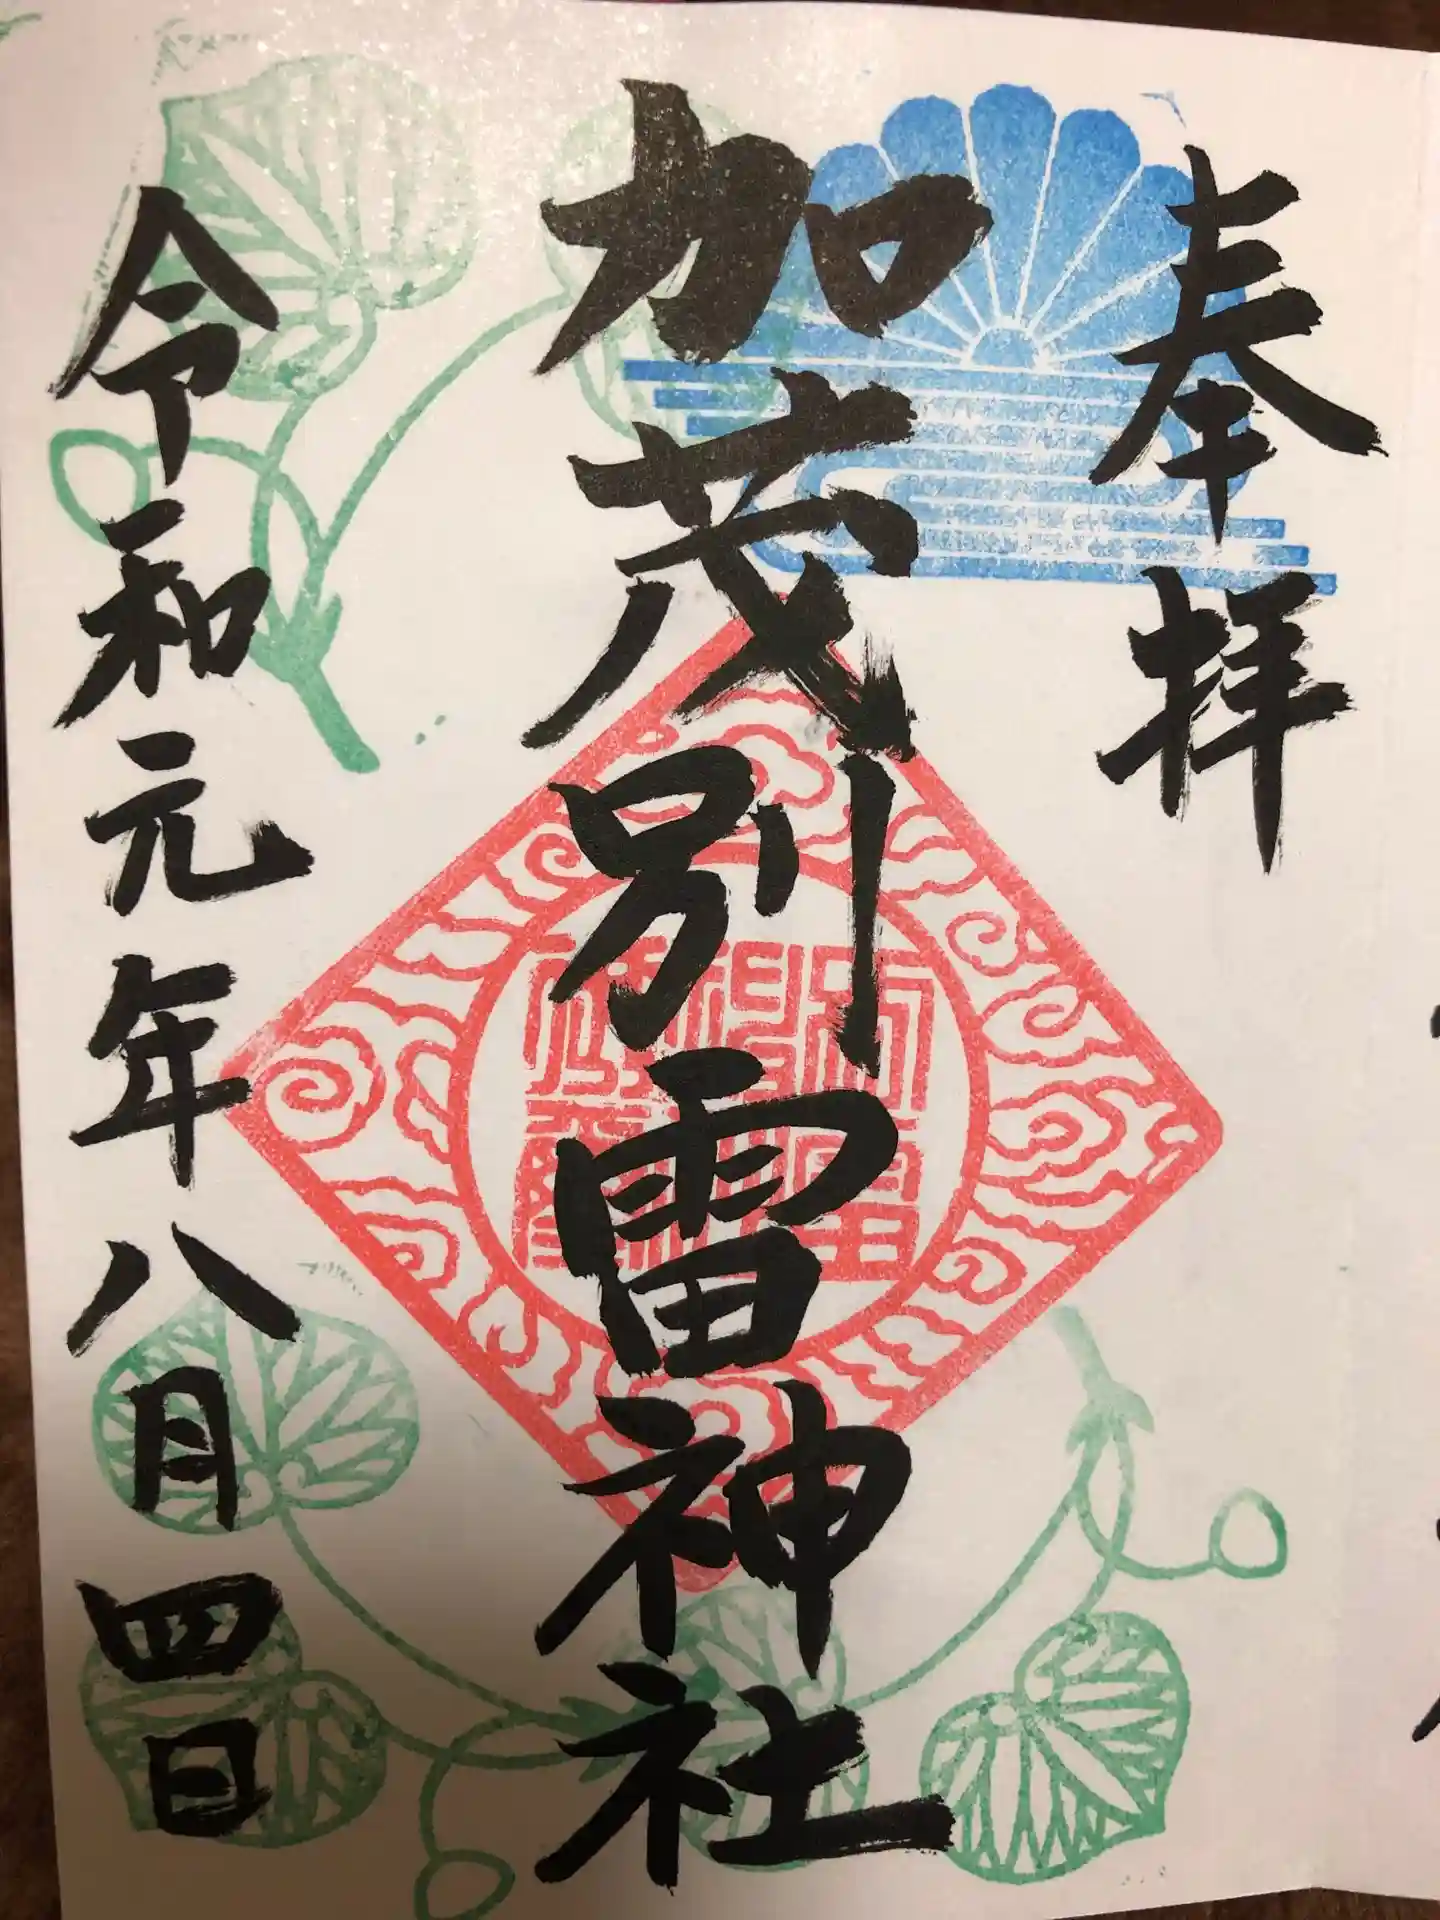 奉拝
加茂別雷神社
令和元年八月四日